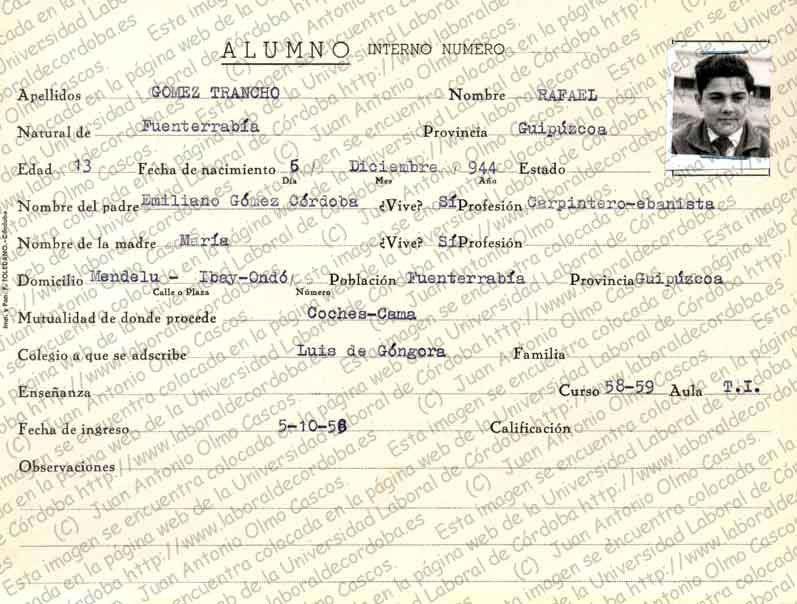 ALUMNO INTERNO NUMERO
Apellidos GOMEZ TRANCHO Nombre RAFAEL
Natural de Fuenterrabía Provincia Guipúzcoa
Edad 13 Fecha de nacimiento 5 Diciembre 944 Estado
Día Mes Año
Nombre del padre Emiliano Gómez Córdoba ¿Vive? Sí Profesión Carpintero-ebanista
Nombre de la madre María ¿Vive? Sí Profesión
Domicilio Mendelu - Ibay-Ondó Población Fuenterrabía Provincia Guipúzcoa
Calle o Plaza Número
Mutualidad de donde procede Coches-Cama
Colegio a que se adscribe Luis de Góngora Familia
Enseñanza Curso 58-59 Aula T.I.
Fecha de ingreso 5-10-56 Calificación
Observaciones
Imp. y Pap. F. TOLEDANO.-Córdoba
Esta imagen se encuentra colocada en la página web de la Universidad Laboral de Córdoba http://www.laboraldecordoba.es
(C) Juan Antonio Olmo Cascos.